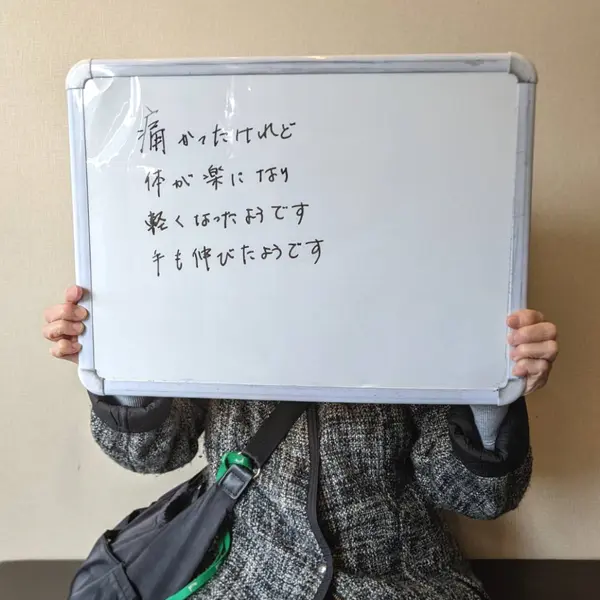 痛かったけれど
体が楽になり
軽くなったようです
手も伸びたようです